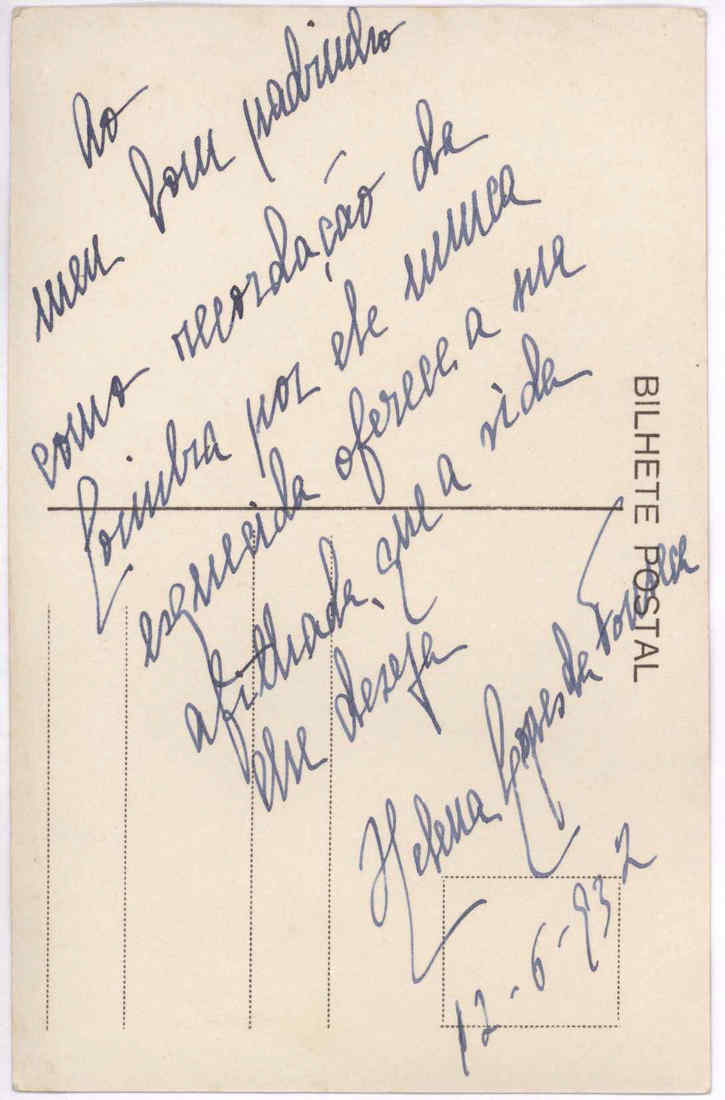 Ao
meu bom padrinho
como recordação da
Coimbra por ele nunca
esquecida oferece a sua
afilhada, que a vida
lhe deseja
Helena Lopes da Fonseca
12-6-932
BILHETE POSTAL